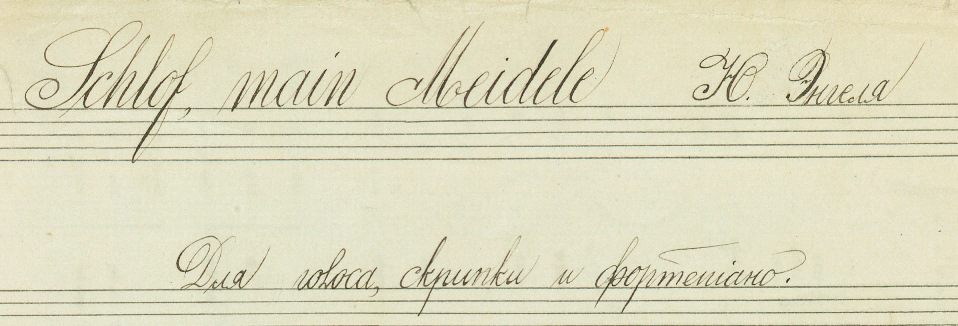 Schlof, main Meidele Ю. Энгеля
Для голоса, скрипки и фортепіано.